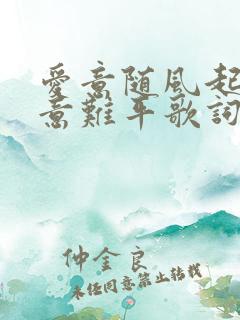 愛意随風起
意難平歌詞
仲金良
未经同意禁止转载